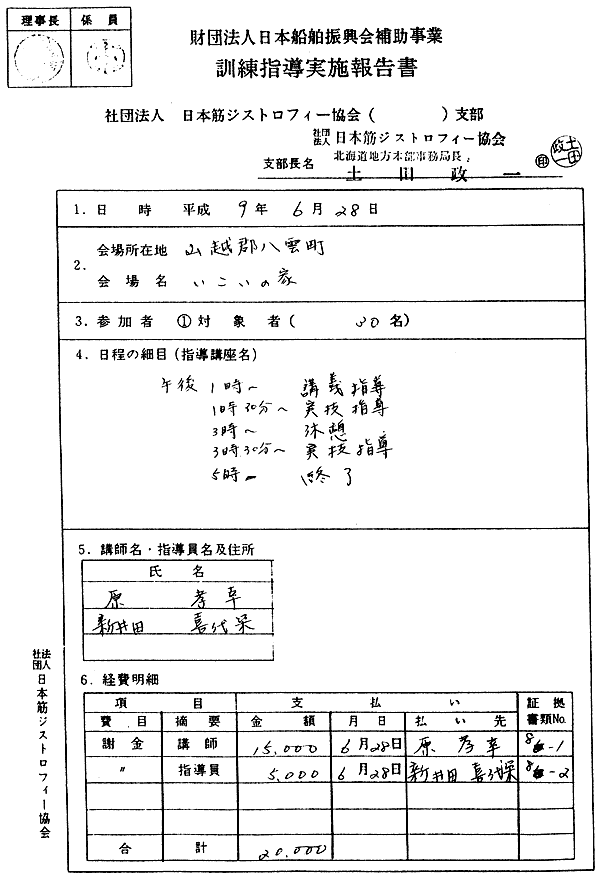 理事長 係員
財団法人日本船舶振興会補助事業
訓練指導実施報告書
社団法人 日本筋ジストロフィー協会( )支部
社団法人 日本筋ジストロフィー協会
北海道地方本部事務局長
支部長名 土田政一 印
1. 日時 平成 9年 6月 28日
2. 会場所在地 山越郡八雲町
会場名 いこいの家
3. 参加者 ①対象者( 30名)
4. 日程の細目(指導講座名)
午後 1時~ 講義指導
1時30分~ 実技指導
3時~ 休憩
3時30分~ 実技指導
5時ー 終了
5. 講師名・指導員名及住所
氏名
原 孝幸
新井田 喜代
6. 経費明細
項目 支払い 証拠書類No.
費目 摘要 金額 月日 払い先
謝金 講師 15,000 6月28日 原 孝幸 8-1
〃 指導員 5,000 6月28日 新井田 喜代 8-2
合計 20,000
社団法人 日本筋ジストロフィー協会